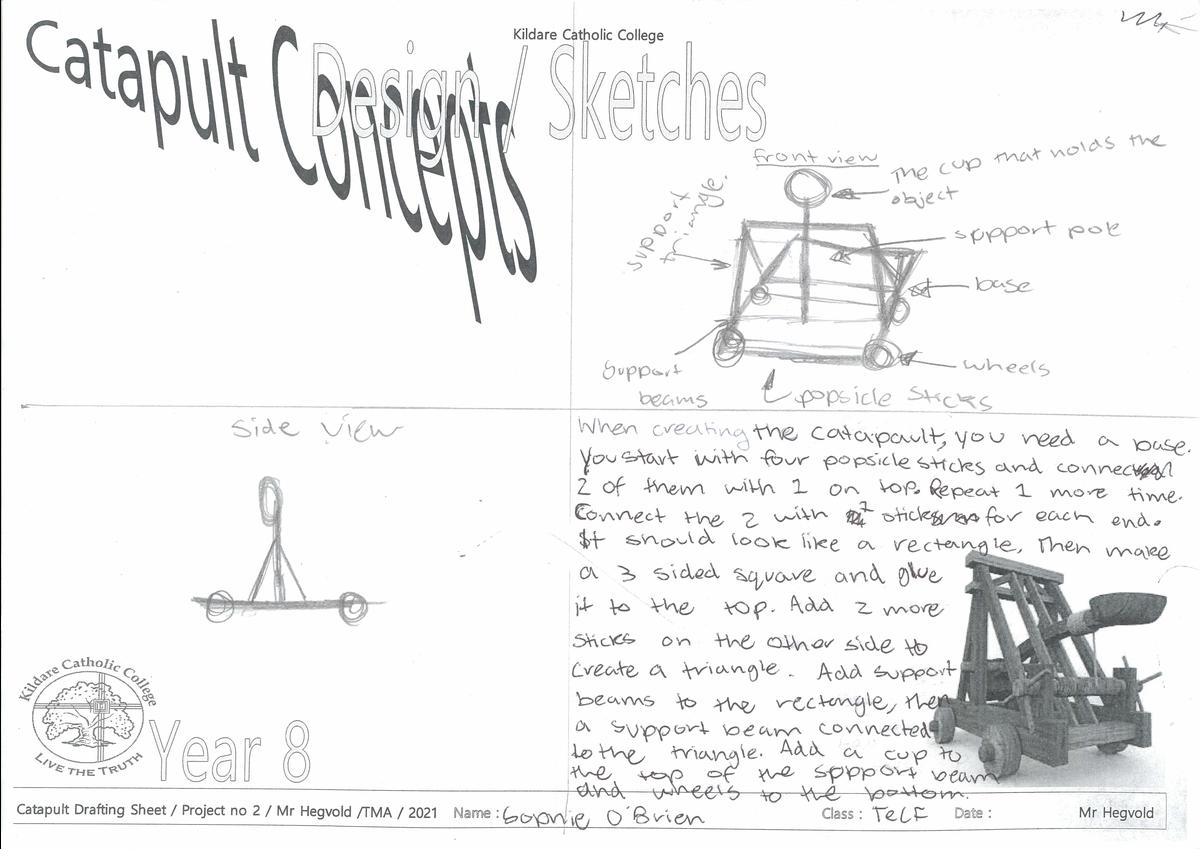 Kildare Catholic College
Catapult Concepts
Design / Sketches
front view
The cup that holds the
object
support
triangle.
support pole
base
wheels
support
beams
popsicle sticks
side view
When creating the catapault, you need a base.
You start with four popsicle sticks and connect
2 of them with 1 on top. Repeat 1 more time.
Connect the 2 with 2 sticks for each end.
It should look like a rectangle, Then make
a 3 sided square and glue
it to the top. Add 2 more
sticks on the other side to
create a triangle. Add support
beams to the rectangle, then
a support beam connected
to the triangle. Add a cup to
the top of the sppport beam
and wheels to the bottom.
Kildare Catholic College
LIVE THE TRUTH
Year 8
Catapult Drafting Sheet / Project no 2 / Mr Hegvold /TMA / 2021 Name : Sophie O'Brien Class : TeCF Date : Mr Hegvold